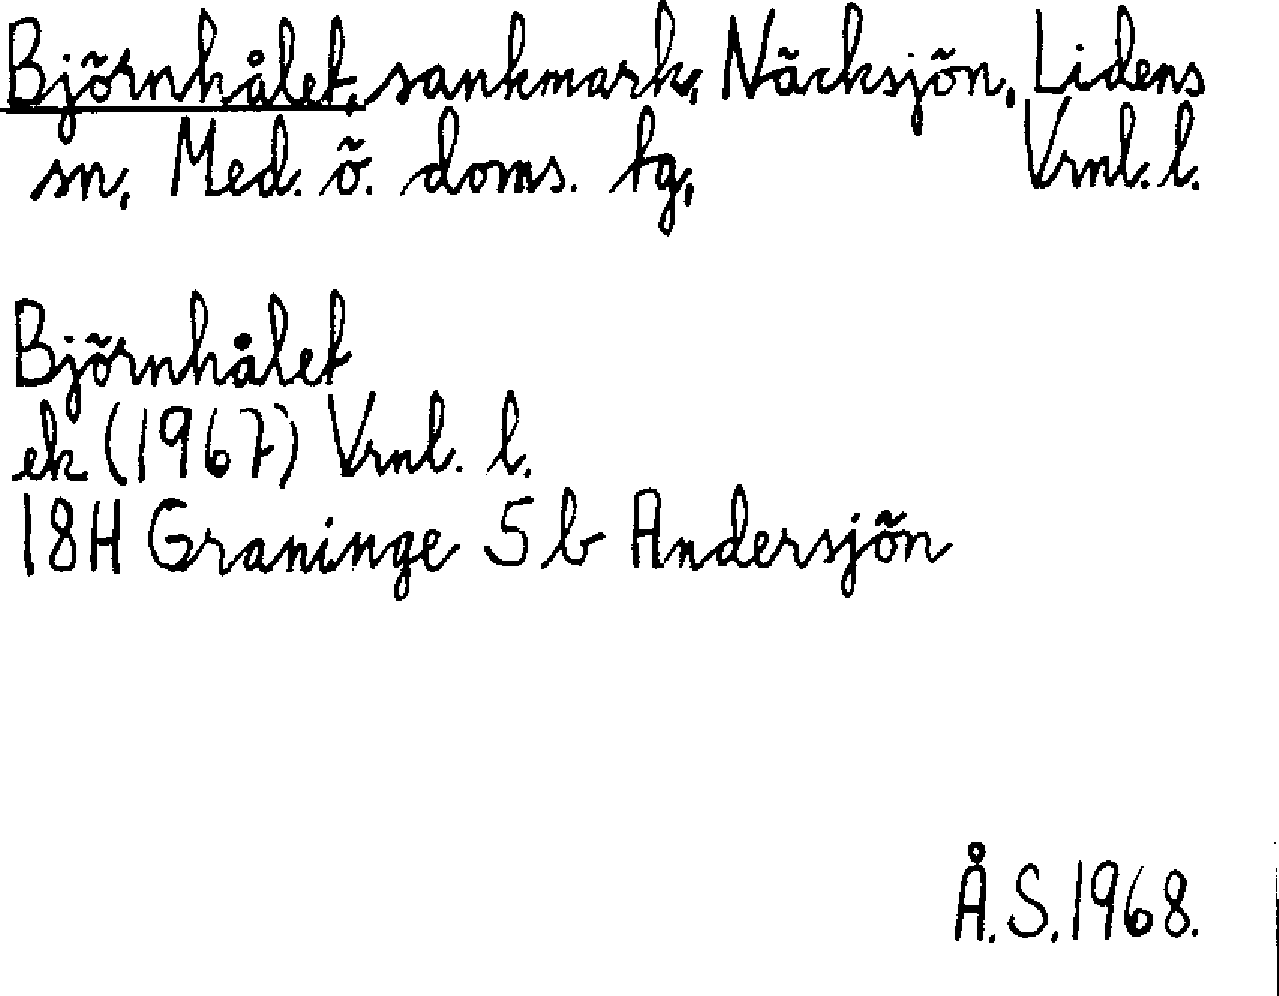 Björnhålet, sankmark, Näcksjön, Lidens
sn, Med. ö. doms. tg, Vrnl. l.
Björnhålet
ek (1967) Vrnl. l.
18H Graninge 5 b Andersjön
Å.S. 1968.